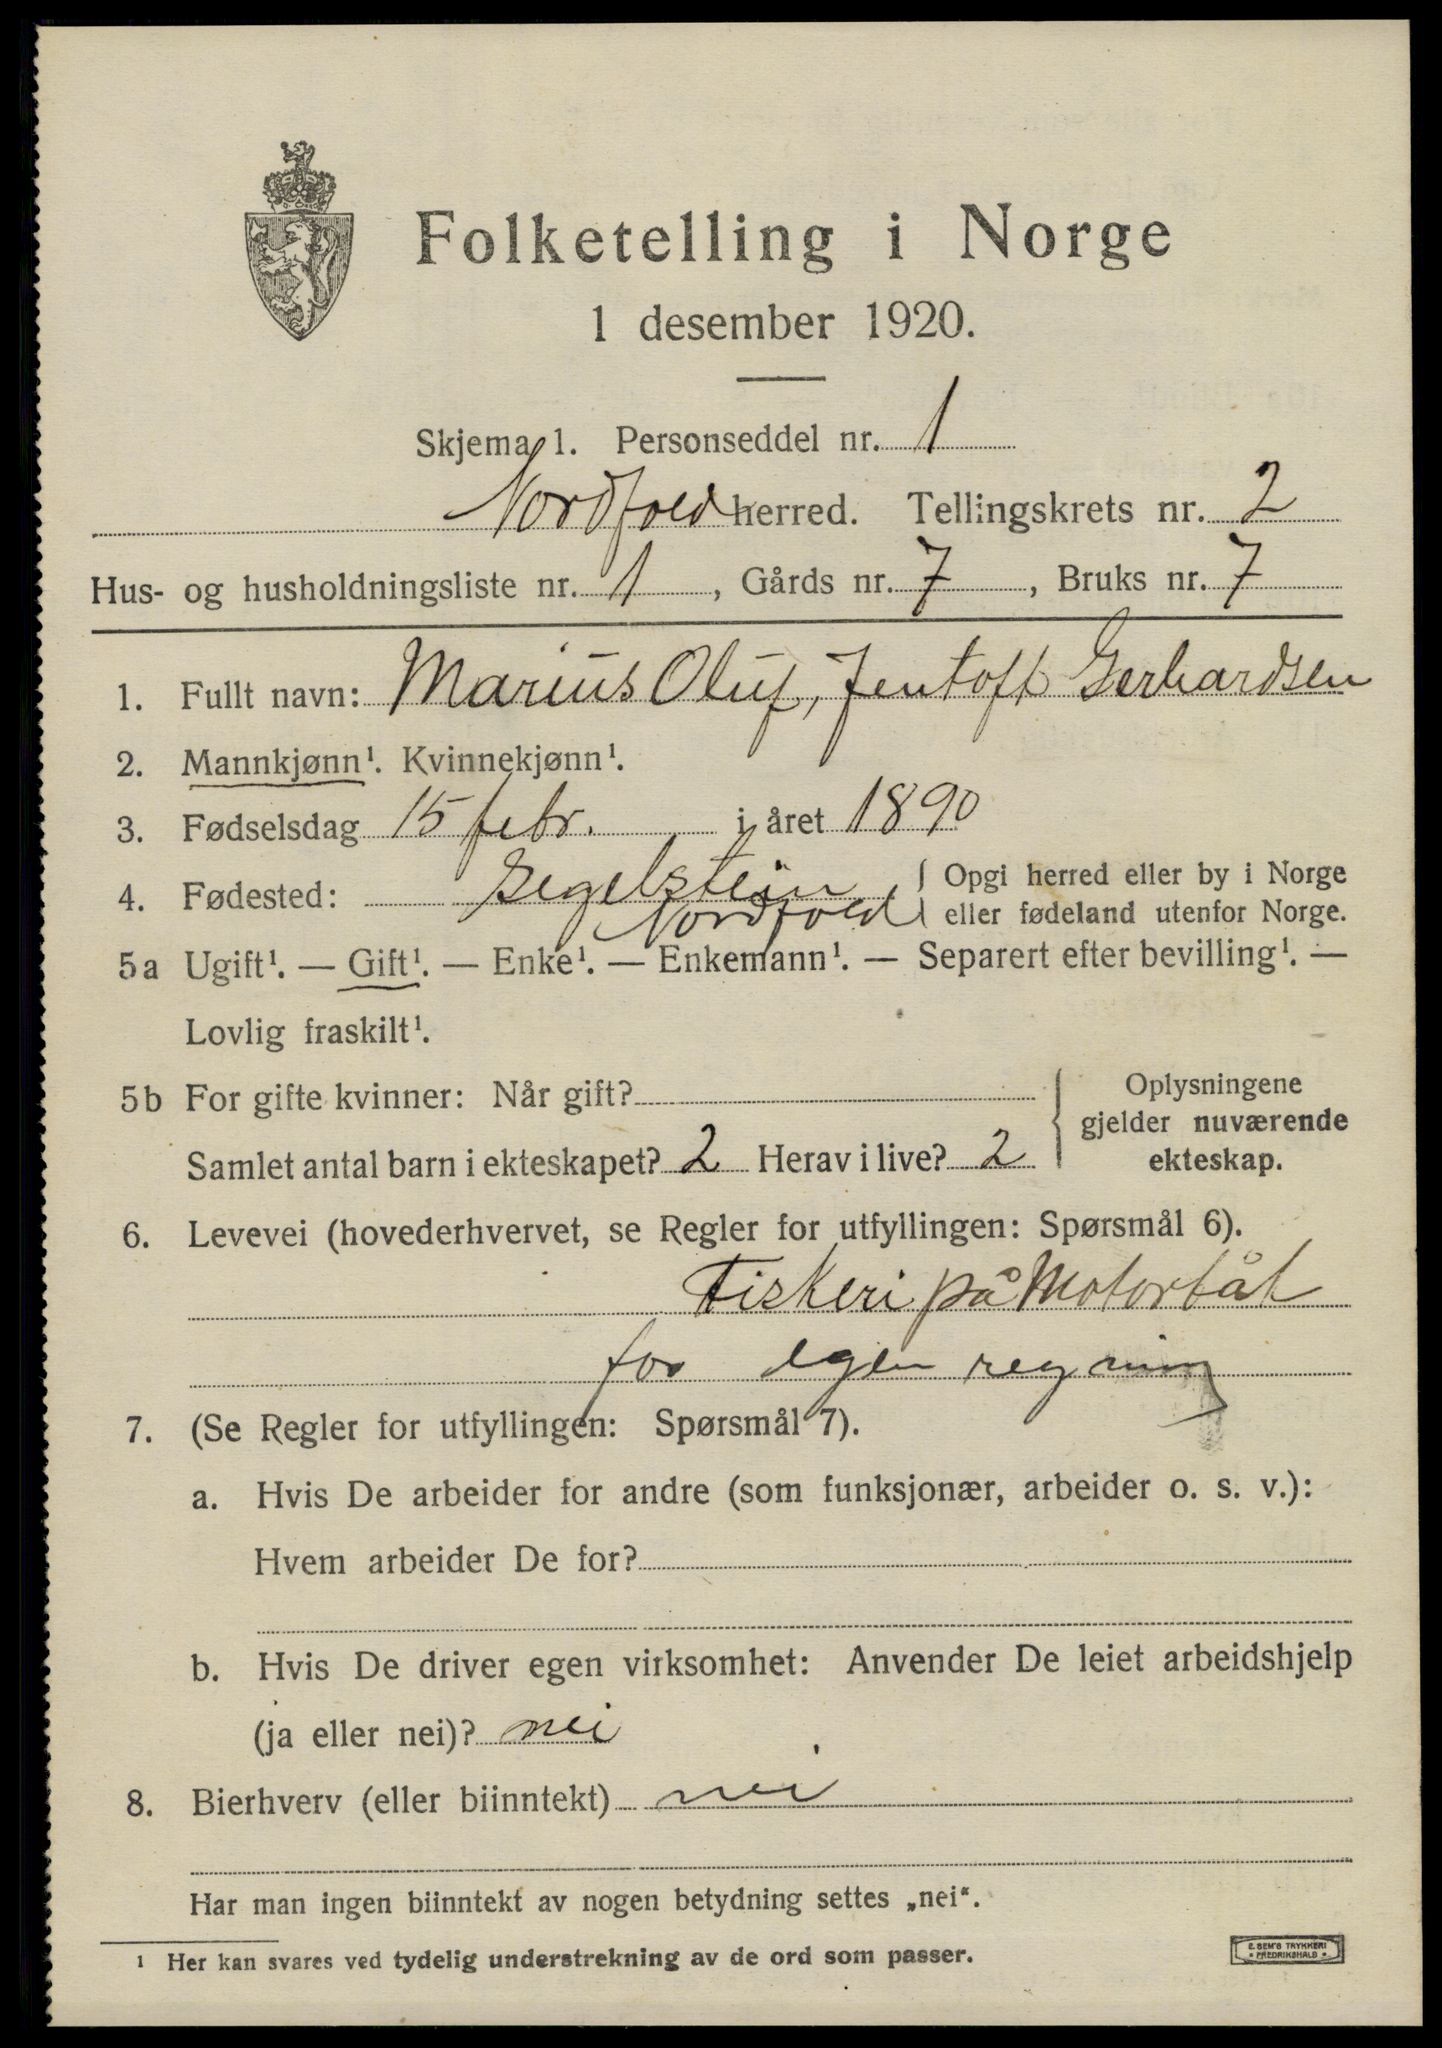 Folketelling i Norge
1 desember 1920.
Skjema 1. Personseddel nr. 1
Nordfold herred. Tellingskrets nr. 2
Hus- og husholdningsliste nr. 1, Gårds nr. 7, Bruks nr. 7
1. Fullt navn: Marius Oluf, Jentoft Gerhardsen
2. Mannkjønn¹. Kvinnekjønn¹.
3. Fødselsdag 15 febr. i året 1890
4. Fødested: Segelstein
Nordfold
Opgi herred eller by i Norge
eller fødeland utenfor Norge.
5a Ugift¹. — Gift¹. — Enke¹. — Enkemann¹. — Separert efter bevilling¹. —
Lovlig fraskilt¹.
5b For gifte kvinner: Når gift?
Samlet antal barn i ekteskapet? 2 Herav i live? 2
Oplysningene
gjelder nuværende
ekteskap.
6. Levevei (hovederhvervet, se Regler for utfyllingen: Spørsmål 6).
Fiskeri på Motorbåt
for egen regning
7. (Se Regler for utfyllingen: Spørsmål 7).
a. Hvis De arbeider for andre (som funksjonær, arbeider o. s. v.):
Hvem arbeider De for?
b. Hvis De driver egen virksomhet: Anvender De leiet arbeidshjelp
(ja eller nei)? nei
8. Bierhverv (eller biinntekt) nei
Har man ingen biinntekt av nogen betydning settes „nei“.
¹ Her kan svares ved tydelig understrekning av de ord som passer.
E. SEM'S TRYKKERI
* FREDRIKSHALD *